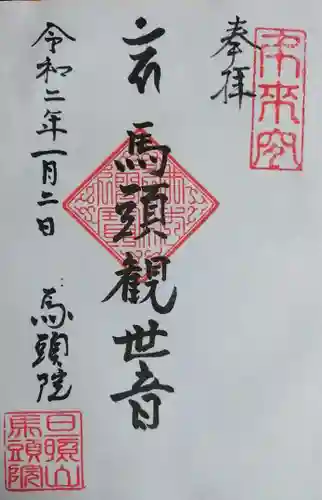 本来空
奉拝
馬頭観世音
令和二年一月二日
馬頭院
日照山
馬頭院